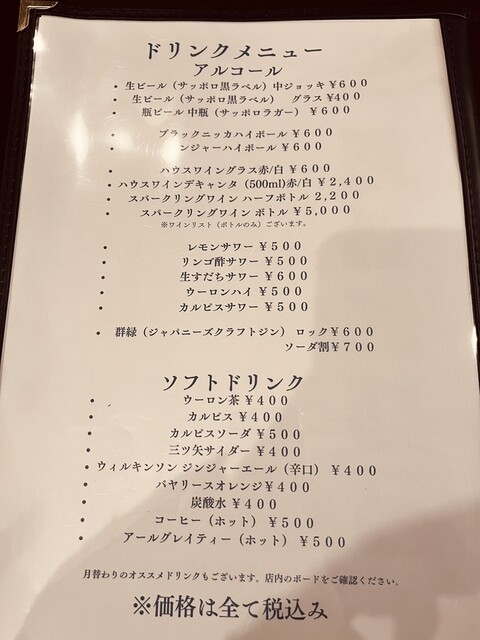 ドリンクメニュー
アルコール
・生ビール（サッポロ黒ラベル）中ジョッキ￥６００
・生ビール（サッポロ黒ラベル）　グラス ¥400
・瓶ビール 中瓶（サッポロラガー）￥６００
・ブラックニッカハイボール ￥６００
・ジンジャーハイボール ￥６００
・ハウスワイングラス赤/白 ￥６００
・ハウスワインデキャンタ（500ml)赤/白 ￥２,４００
・スパークリングワイン ハーフボトル ２,２００
・スパークリングワイン ボトル ￥５,０００
※ワインリスト（ボトルのみ）ございます。
・レモンサワー ￥５００
・リンゴ酢サワー ￥５００
・生すだちサワー ￥６００
・ウーロンハイ ￥５００
・カルピスサワー ￥５００
・群緑（ジャパニーズクラフトジン）　ロック￥６００
ソーダ割￥７００
ソフトドリンク
・ウーロン茶 ￥４００
・カルピス ￥４００
・カルピスソーダ ￥５００
・三ツ矢サイダー ￥４００
・ウィルキンソン ジンジャーエール（辛口）￥４００
・バヤリースオレンジ￥４００
・炭酸水 ￥４００
・コーヒー（ホット）￥５００
・アールグレイティー（ホット）￥５００
月替わりのオススメドリンクもございます。店内のボードをご確認ください。
※価格は全て税込み